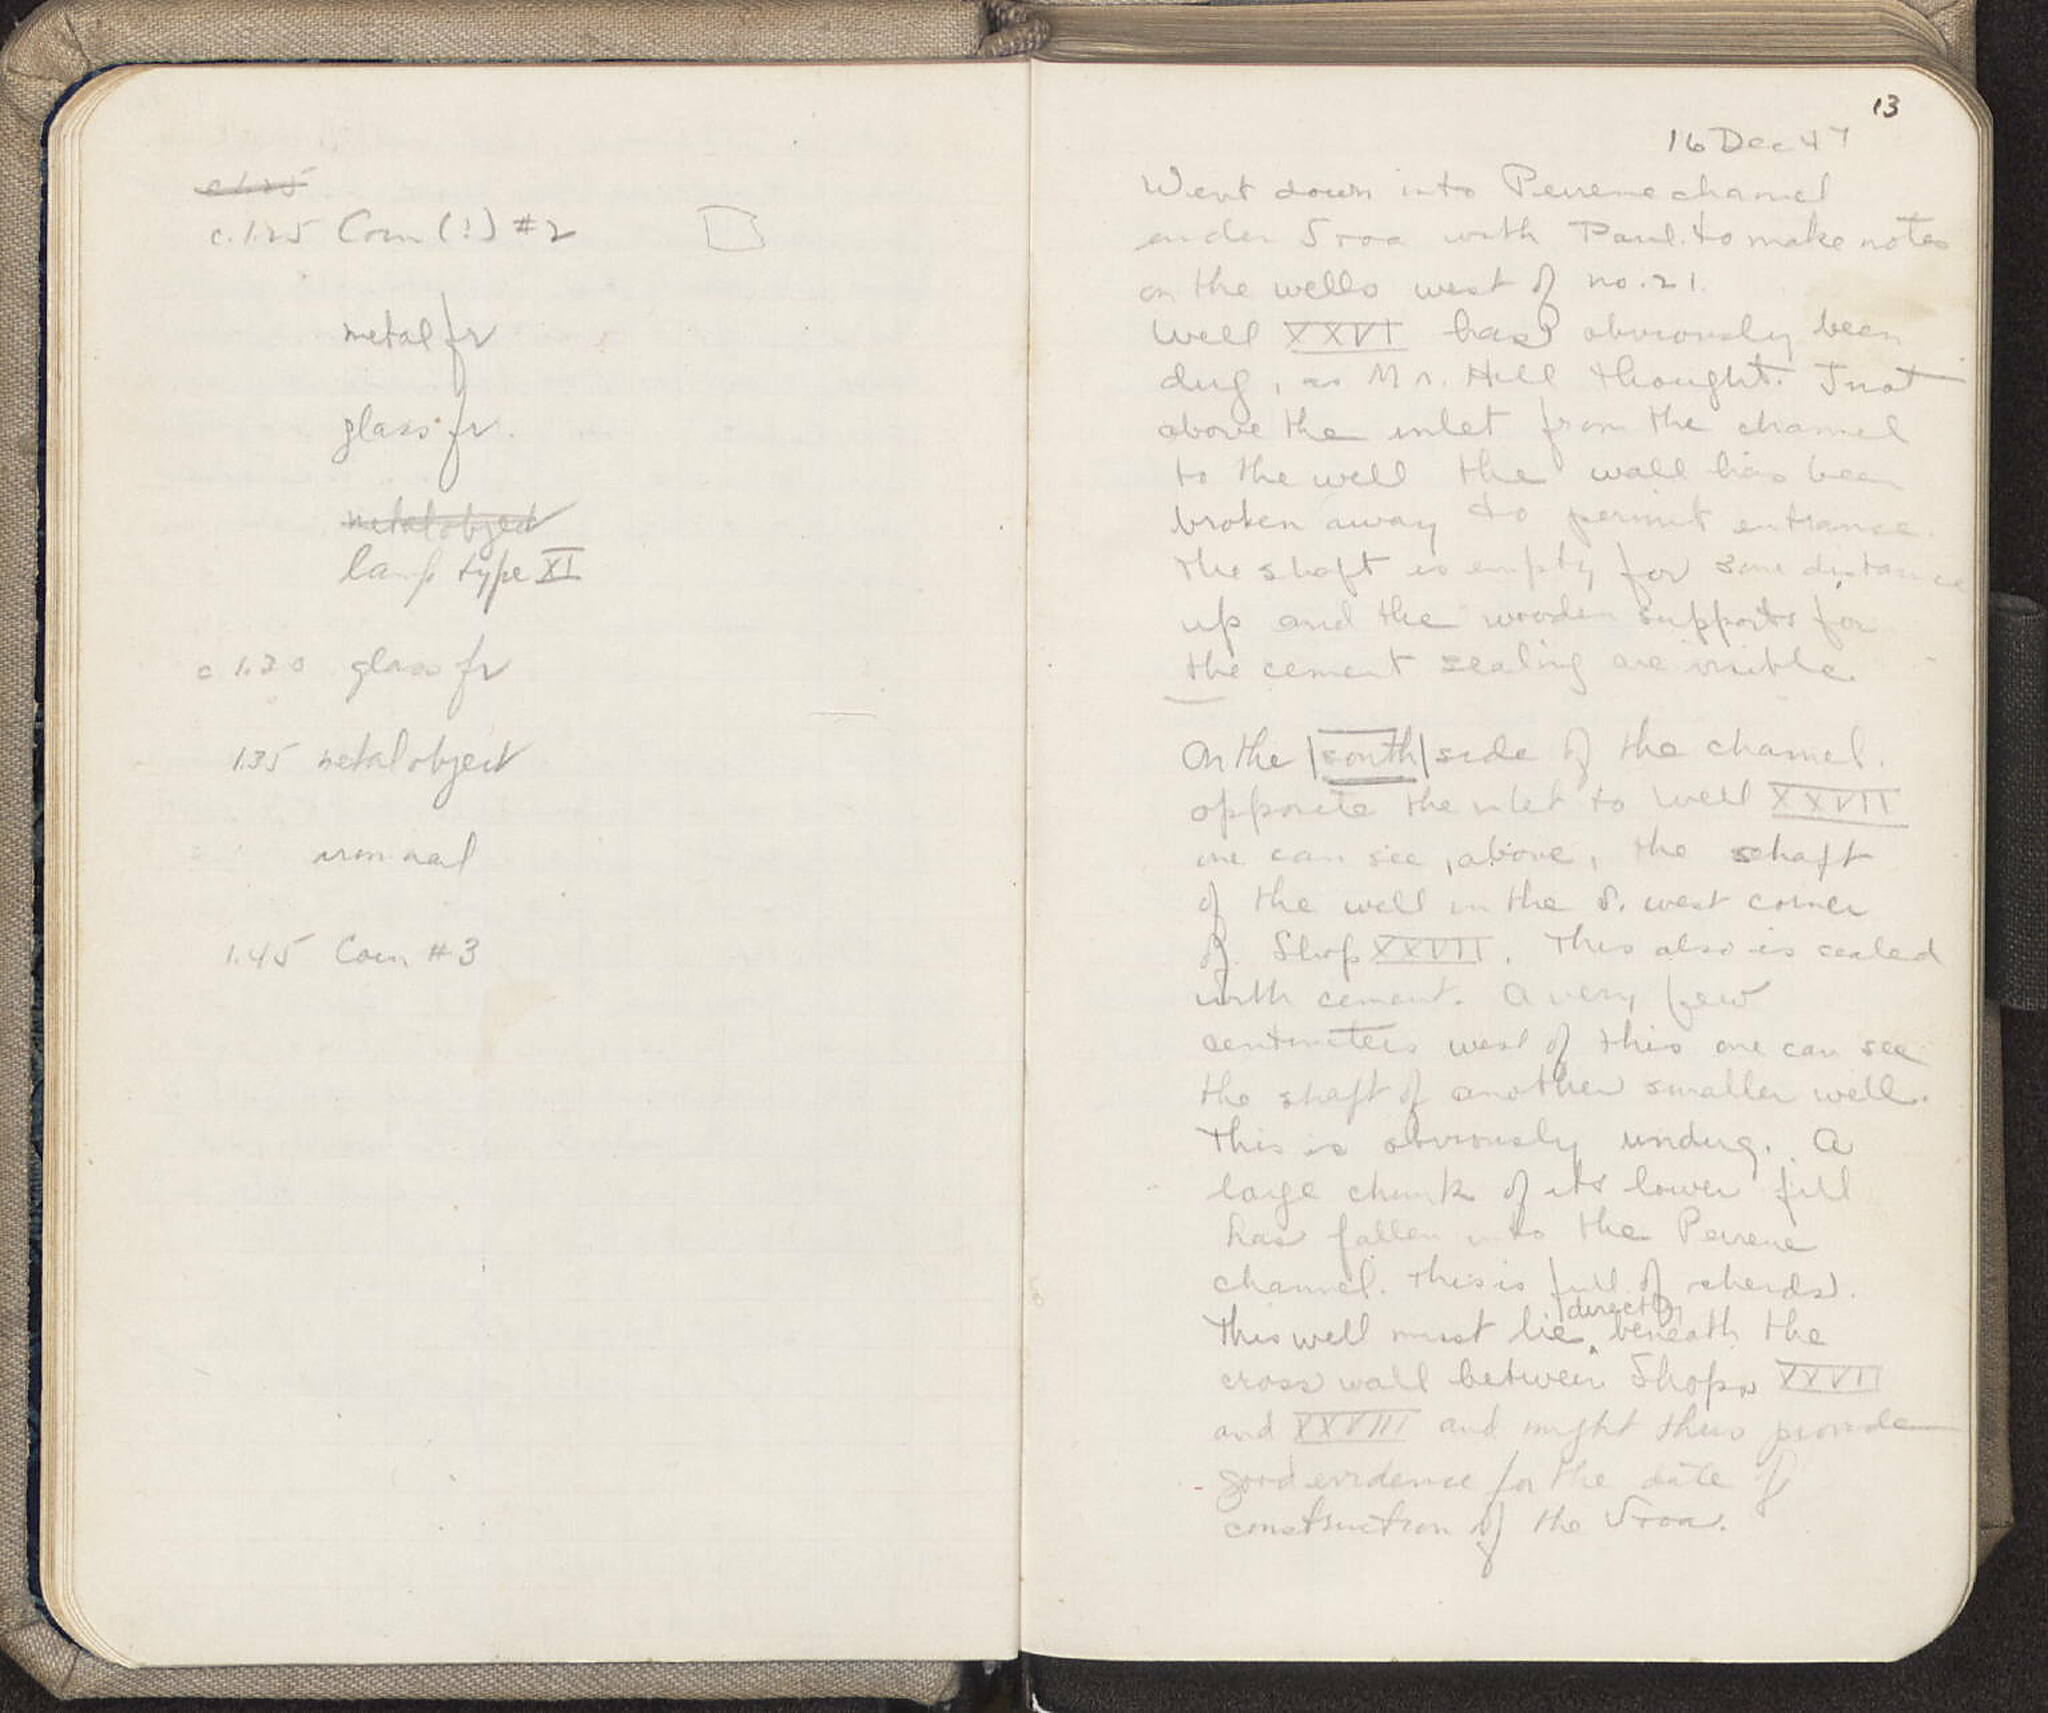 c. 1.25 Coin (?) #2
metal fr
glass fr.
metal object
lamp type XI
c 1.30 glass fr
1.35 metal object
iron nail
1.45 Coin #3
13
16 Dec 47
Went down into Peirene channel
under Stoa with Paul. to make notes
on the wells west of no. 21.
Well XXVI has obviously been
dug, as Mr. Hill thought. Just
above the inlet from the channel
to the well the wall has been
broken away to permit entrance.
The shaft is empty for some distance
up and the wooden supports for
the cement sealing are visible.
On the |south| side of the channel.
opposite the inlet to Well XXVII
one can see, above, the shaft
of the well in the S. west corner
of Shop XXVII. This also is sealed
with cement. A very few
centimeters west of this one can see
the shaft of another smaller well.
This is obviously undug. A
large chunk of its lower fill
has fallen into the Peirene
channel. This is full of sherds.
This well must lie directly beneath the
cross wall between Shops XXVII
and XXVIII and might thus provide
good evidence for the date of
construction of the Stoa.